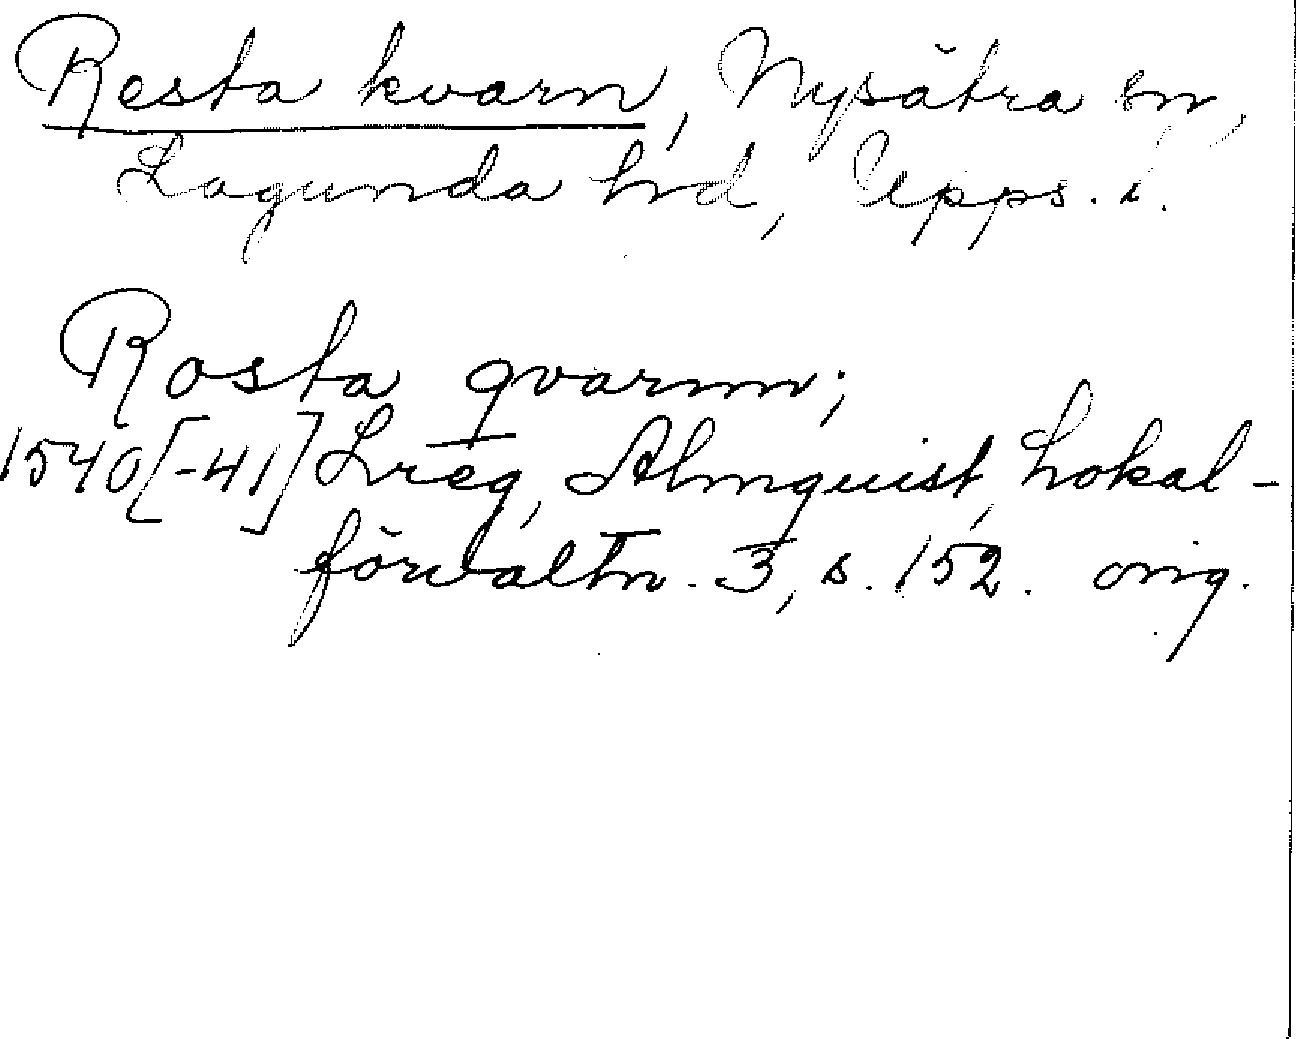 Resta kvarn, Nysätra sn,
Lagunda hd, Upps. l.
Rosta qvarnn;
1540[-41] Lreg, Almquist, Lokal-
förvaltn. 3, s. 152. orig.